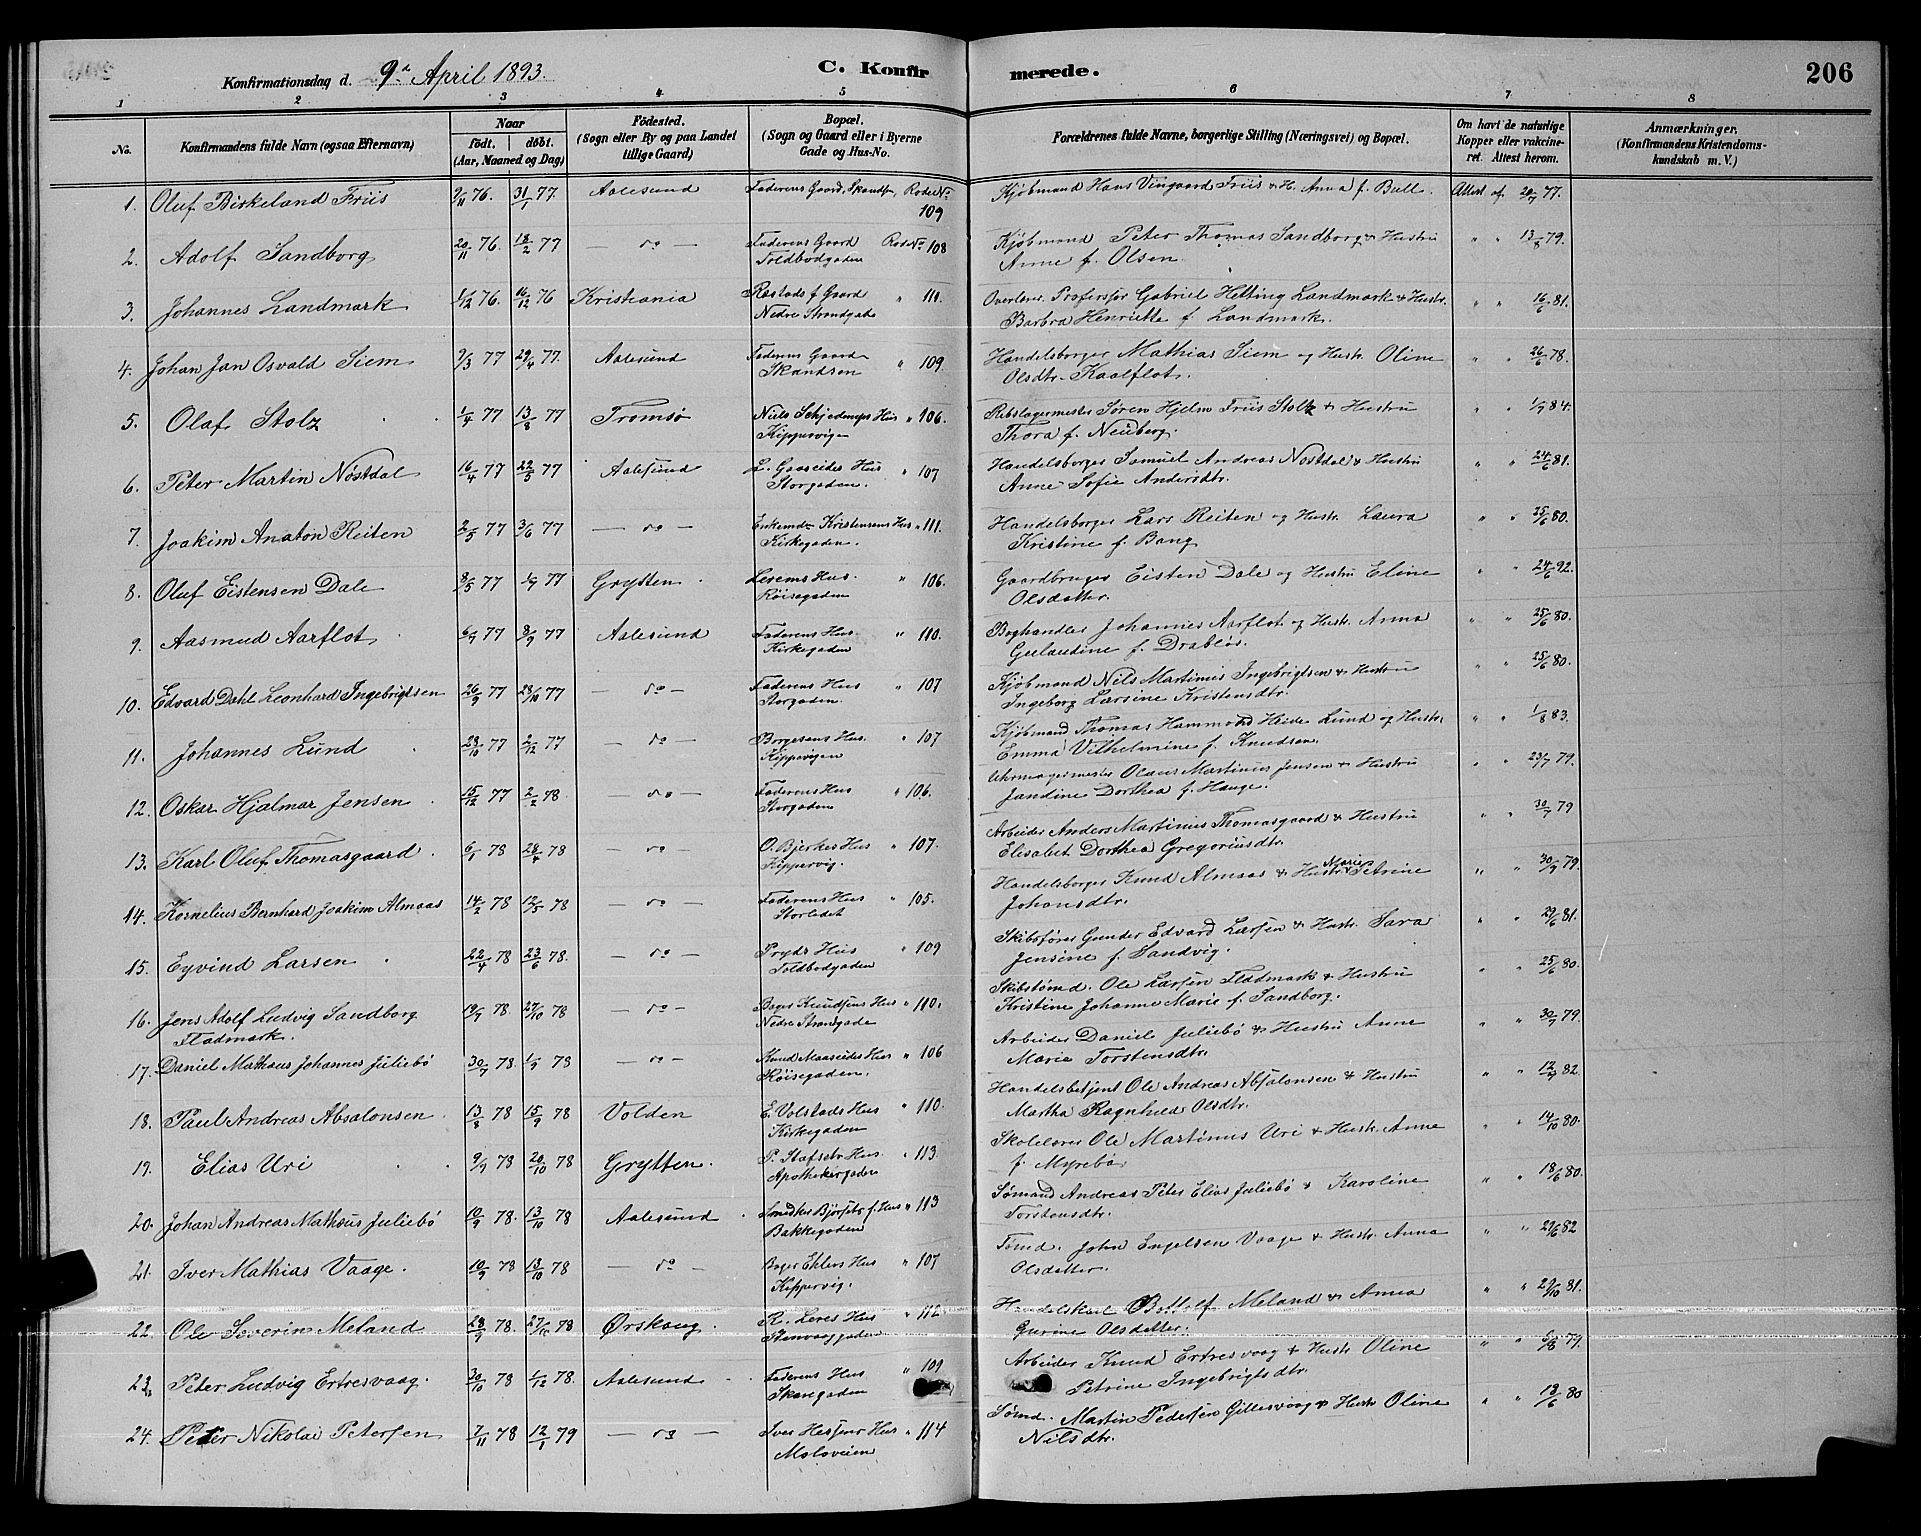 Konfirmationsdag d. 9d April 1893. C. Konfirmerede. 206
1 2 3 4 5 6 7 8
No. Konfirmandens fulde Navn (ogsaa Efternavn) Naar født. døbt. (Aar, Maaned og Dag) Födested. (Sogn eller By og paa Landet tillige Gaard) Bopæl. (Sogn og Gaard eller i Byerne Gade og Hus-No. Forældrenes fulde Navne, borgerlige Stilling (Næringsvei) og Bopæl. Om havt de naturlige Kopper eller vakcineret. Attest herom. Anmærkninger. (Konfirmandens Kristendomskundskab m. V.)
1. Oluf Birkeland Friis 2/11 76. 31/1 77. Aalesund Faderens Gaard, Skandsen, Rode No 109 Kjøbmand Hans Vingaard Friis & H. Anna f. Bull. Attest af 20/7 77.
2. Adolf Sandborg 20/11 76. 18/2 77 — do — Faderens Gaard Rode No 108
Toldbodgaden
Kjøbmand Peter Thomas Sandborg & Hustru
Anne f. Olsen. " " 13/8 79.
3. Johannes Landmark 1/12 76. 16/12 76 Kristiania Røstads f. Gaard " 111.
Nedre Strandgade
Overlærer, Professor Gabriel Hetting Landmark & Hustr.
Barbra Henriette f. Landmark. " " 16/6 81.
4. Johan Jan Osvald Siem 9/3 77 29/4 77. Aalesund Faderens Gaard
Skandsen " 109.
Handelsborger Mathias Siem og Hustr. Oline
Olsdtr. Kaalflot. " " 26/6 78.
5. Olaf Stolz 1/4 77 13/8 77 Tromsø Niels Hus " 106.
Kippervigen
Rebslagermester Søren Hjelm Friis Stolz & Hustru
Thora f. Neuberg. " " 1/7 84.
6. Peter Martin Nøstdal 16/4 77 22/5 77 Aalesund L. Gaaseides Hus " 107
Storgaden.
Handelsborger Samuel Andreas Nøstdal & Hustru
Anne Sofie Andersdtr. " " 24/6 81.
7. Joakim Anaton Reiten 2/5 77 3/6 77 — do — Enkemdm Kristensens Hus " 111.
Kirkegaden.
Handelsborger Lars Reiten og Hustr. Laura
Kristine f. Bang " " 25/6 80.
8. Oluf Eistensen Dale 8/5 77 1/7 77 Grytten Lerems Hus. " 106.
Røisegaden
Gaardbruger Eisten Dale og Hustru Eline
Olsdatter. " " 24/6 92.
9. Aasmud Aarflot 6/7 77 8/9 77 Aalesund Faderens Hus. " 110.
Kirkegaden
Boghandler Johannes Aarflot og Hustr. Anna
Gulaudine f. Drabløs. " " 25/6 80.
10. Edvard Dahl Leonhard Ingebrigtsen 26/9 77 28/10 77 — do — Faderens Hus " 107
Storgaden.
Kjøbmand Nils Martinus Ingebrigtsen & Hustru
Ingeborg Larsine Kristensdtr. " " 25/6 80.
11. Johannes Lund 23/10 77 2/12 77 — do — Borgesens Hus. " 107
Kippervigen
Kjøbmand Thomas Hammond Heide Lund og Hustr.
Emma Vilhelmine f. Knudsen. " " 1/8 83.
12. Oskar Hjalmar Jensen 15/12 77 2/2 78. — do — Faderens Hus " 106.
Storgaden
Uhrmagermester Olaus Martinus Jensen & Hustru
Jandine Dorthea f. Hauge. " " 23/7 79.
13. Karl Oluf Thomasgaard 6/1 78 28/4 78 — do — O. Bjerkes Hus " 107.
Kippervig.
Arbeider Anders Martinus Thomasgaard & Hustru
Elisabet Dorthea Gregoriusdtr. " " 30/7 79
14. Kornelius Bernhard Joakim Almaas 14/2 78 12/5 78 — do — Faderens Hus " 105.
Storledet
Handelsborger Knud Almaas & Hustr. Marie Petrine
Johansdtr. " " 30/7 79.
15. Eyvind Larsen 22/4 78 23/6 78. — do — Pryds Hus " 109
Toldbodgaden
Skibsfører Gunder Edvard Larsen & Hustr. Sara
Jensine f. Sandvig. " " 29/6 81.
16. Jens Adolf Ludvig Sandborg
Fladmark. 19/7 78 27/10 78 — do — Bager Knudsens Hus " 110.
Nedre Strandgade
Skibstømd. Ole Larsen Fladmark & Hustru
Kristine Johanne Marie f. Sandborg. " " 25/6 80.
17. Daniel Mathæus Johannes Juliebø 30/7 78 1/9 78 — do — Knud Maaseides Hus " 106
Røisegaden.
Arbeider Daniel Juliebø & Hustru Anne
Marie Torstensdtr. " " 30/7 79.
18. Paul Andreas Absalonsen 13/8 78 15/9 78 Volden E. Volstads Hus " 110.
Kirkegaden
Handelsbetjent Ole Andreas Absalonsen & Hustru
Martha Ragnhild Olsdtr. " " 12/9 82
19. Elias Uri 9/9 78 20/10 78 Grytten. P. Stafsets Hus. " 113.
Apothekergaden
Skolelærer Ole Martinus Uri & Hustr. Anne
f. Myrebø " " 14/10 80.
20. Johan Andreas Mathæus Juliebø 10/9 78. 13/10 78 Aalesund Smedker Bjørsets f. Hus " 113
Bakkegaden
Sømand Andreas Peter Elias Juliebø & Karoline
Torstensdtr. " " 18/6 80.
21. Iver Mathias Vaage. 10/9 78 13/10 78 — do — Bager Ehlers Hus " 107
Kippervig.
Tømd. John Engelsen Vaage & Hustr. Anna
Olsdatter. " " 29/6 82
22. Ole Severin Meland 23/9 78. 27/10 78 Ørskoug. R. Leres Hus " 112.
Stenvaaggaden
Handelskarl Bottolf Meland & Anna
Gurine Olsdatter. " " 29/10 81.
23. Peter Ludvig Ertresvaag. 30/10 78 1/12 78. Aalesund Faderens Hus " 109
Skaregaden
Arbeider Knud Ertresvaag & Hustr. Oline
Petrine Ingebrigtsdtr. " " 5/8 79.
24. Peter Nikolai Petersen 7/11 78 12/1 79 — do — Iver Hessens Hus " 114
Moloveien
Sømd. Martin Pedersen Gillesvaag & Hustr Oline
Nilsdtr. " " 13/6 80